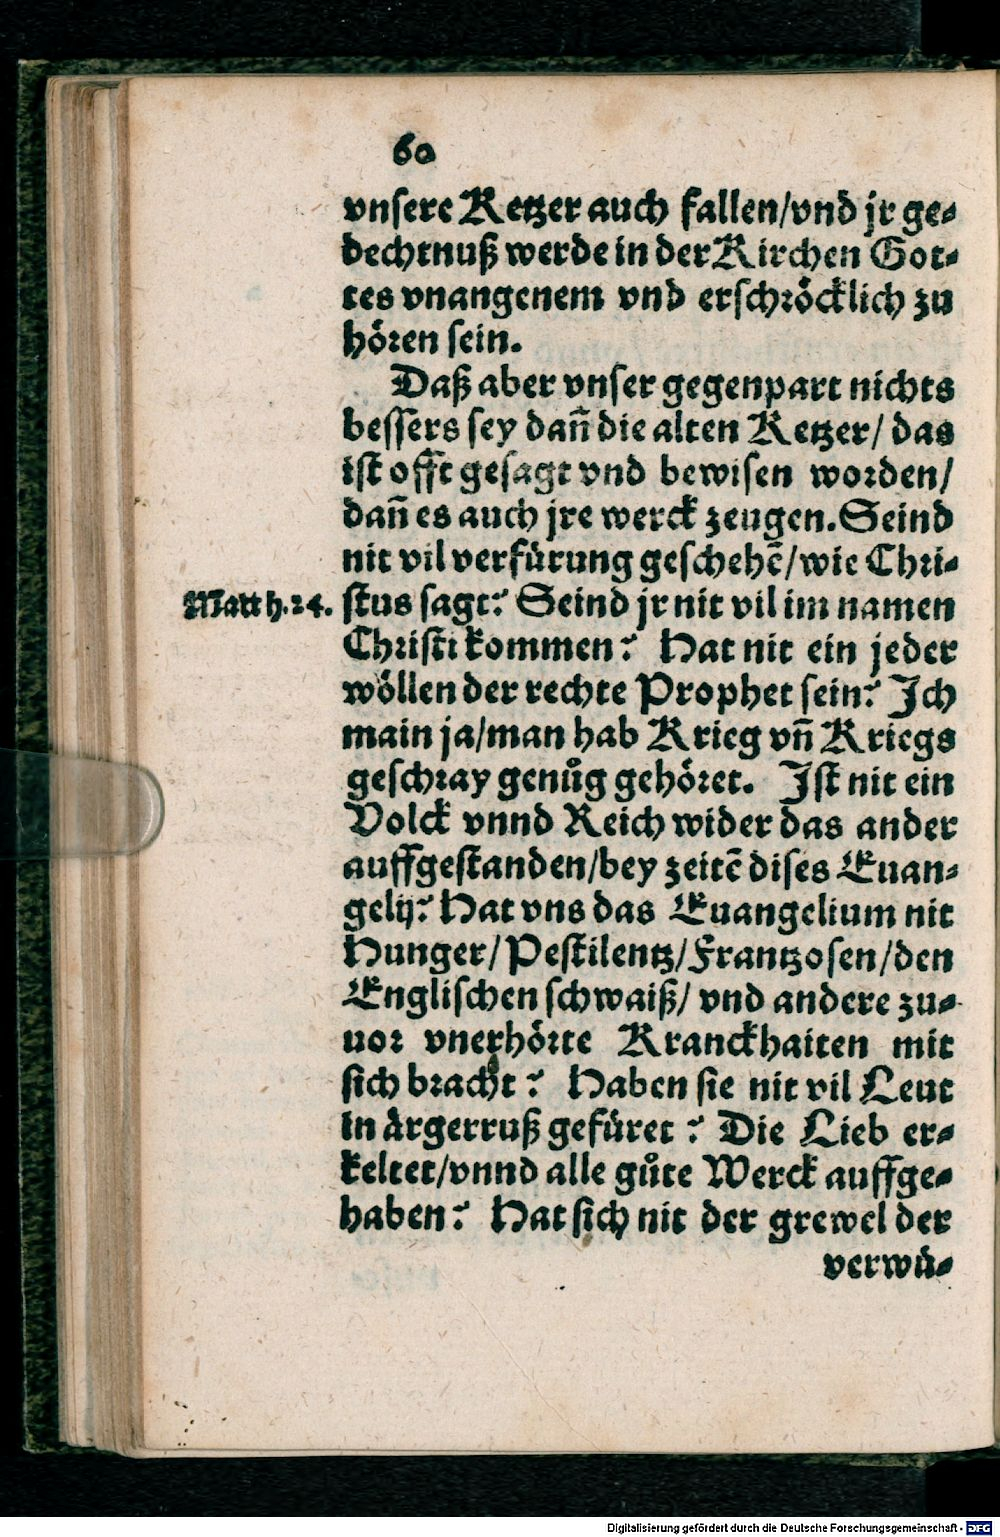 60
vnsere Ketzer auch fallen/vnd jr ge-
dechtnuß werde in der Kirchen Got-
tes vnangenem vnd erschröcklich zu
hören sein.
Daß aber vnser gegenpart nichts
bessers sey dañ die alten Ketzer/ das
ist offt gesagt vnd bewisen worden/
dañ es auch jre werck zeugen. Seind
nit vil verfürung geschehẽ/wie Chri-
Matth.24.
stus sagt? Seind jr nit vil im namen
Christi kommen? Hat nit ein jeder
wöllen der rechte Prophet sein? Ich
main ja/man hab Krieg vñ Kriegs
geschray genůg gehöret. Ist nit ein
Volck vnnd Reich wider das ander
auffgestanden/bey zeitẽ dises Euan-
gelij? Hat vns das Euangelium nit
Hunger/Pestilentz/Frantzosen/den
Englischen schwaiß/ vnd andere zu-
uor vnerhörte Kranckhaiten mit
sich bracht? Haben sie nit vil Leut
in ärgerruß gefüret? Die Lieb er-
keltet/vnnd alle gůte Werck auffge-
haben? Hat sich nit der grewel der
verwü-
Digitalisierung gefördert durch die Deutsche Forschungsgemeinschaft - DFG